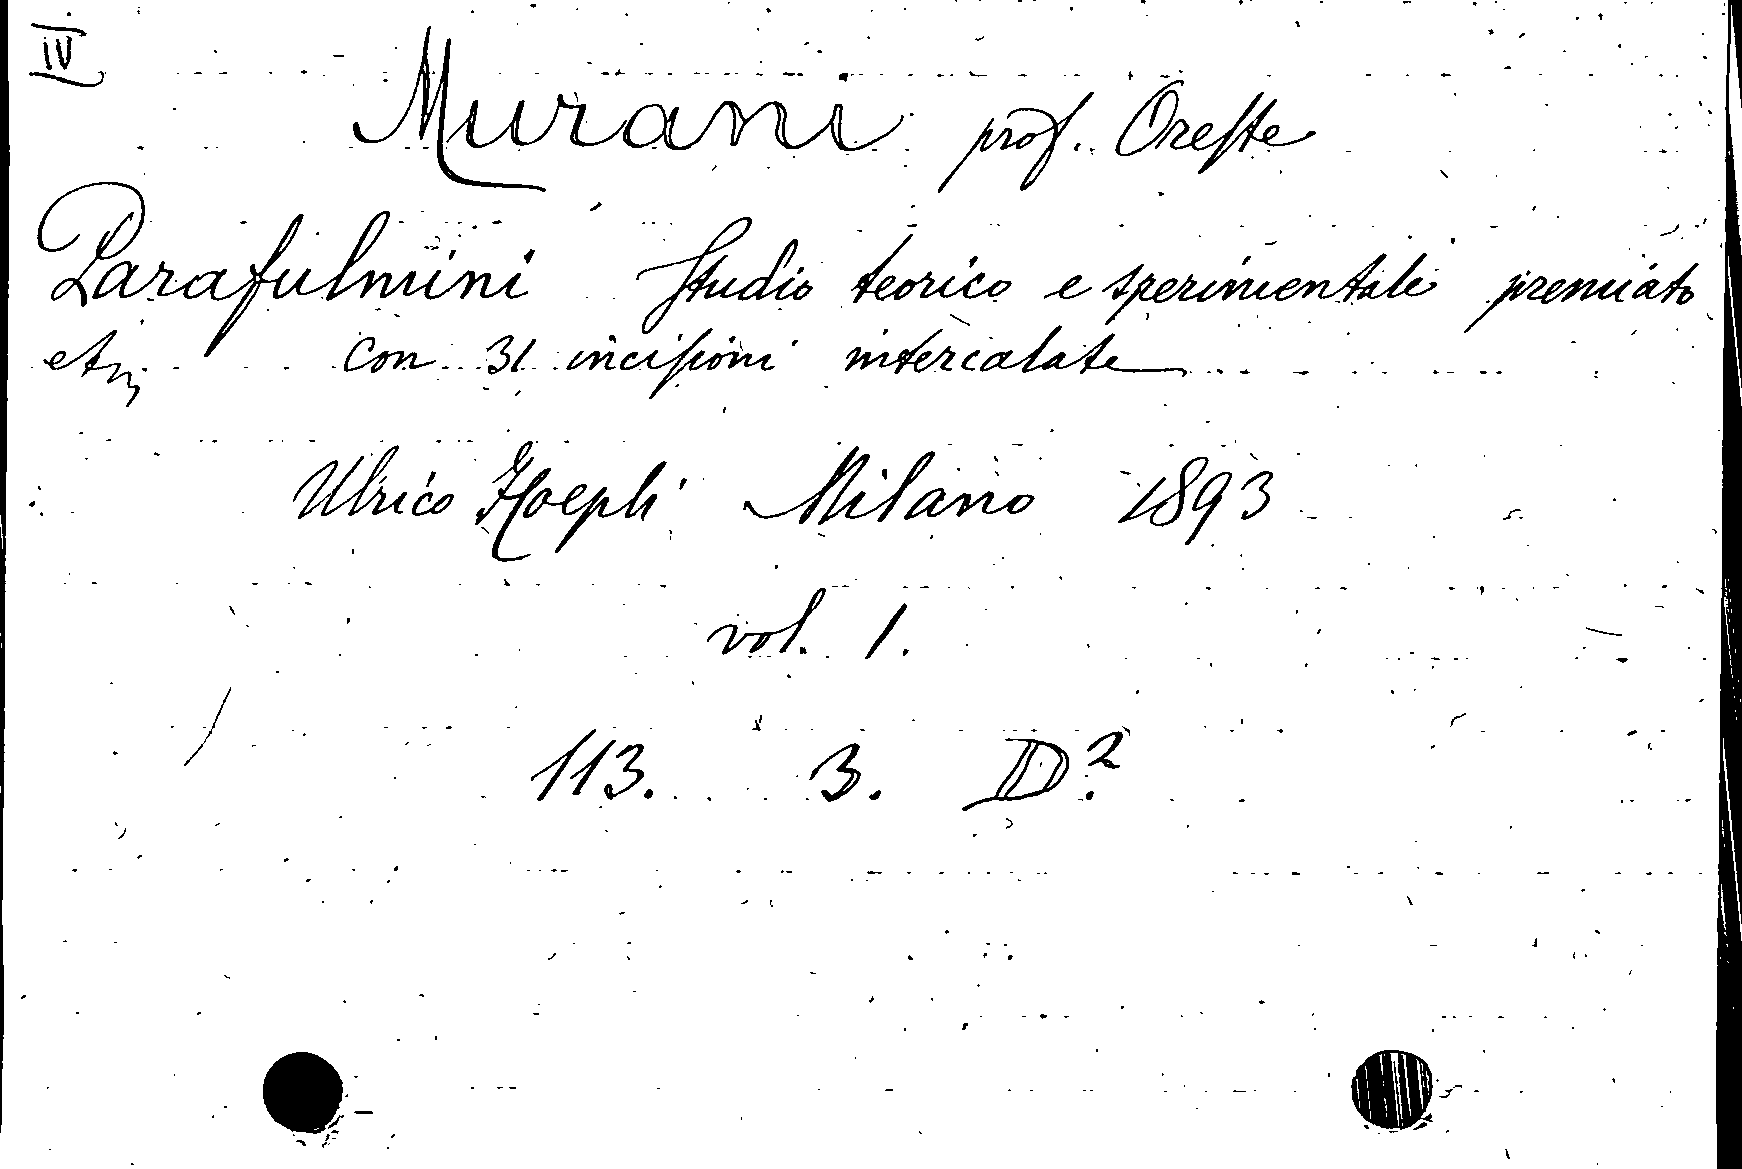 IV
Murani prof. Oreste
Parafulmini Studio teorico e sperimentale premiato
etc. con 31 incisioni intercalate
Ulrico Hoepli Milano 1893
vol. 1.
113. 3. D?